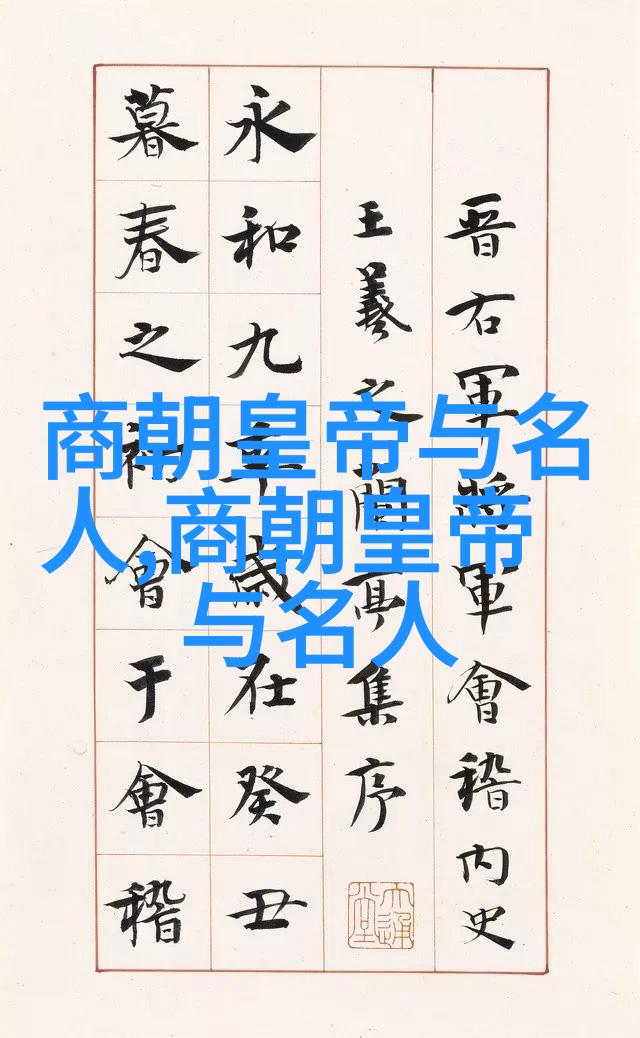 商朝皇帝与名
人,商朝皇帝
与名人
晋右軍將軍會稽内史
王羲之蘭亭集序
永和九年歲在癸丑
暮春之初會于會稽